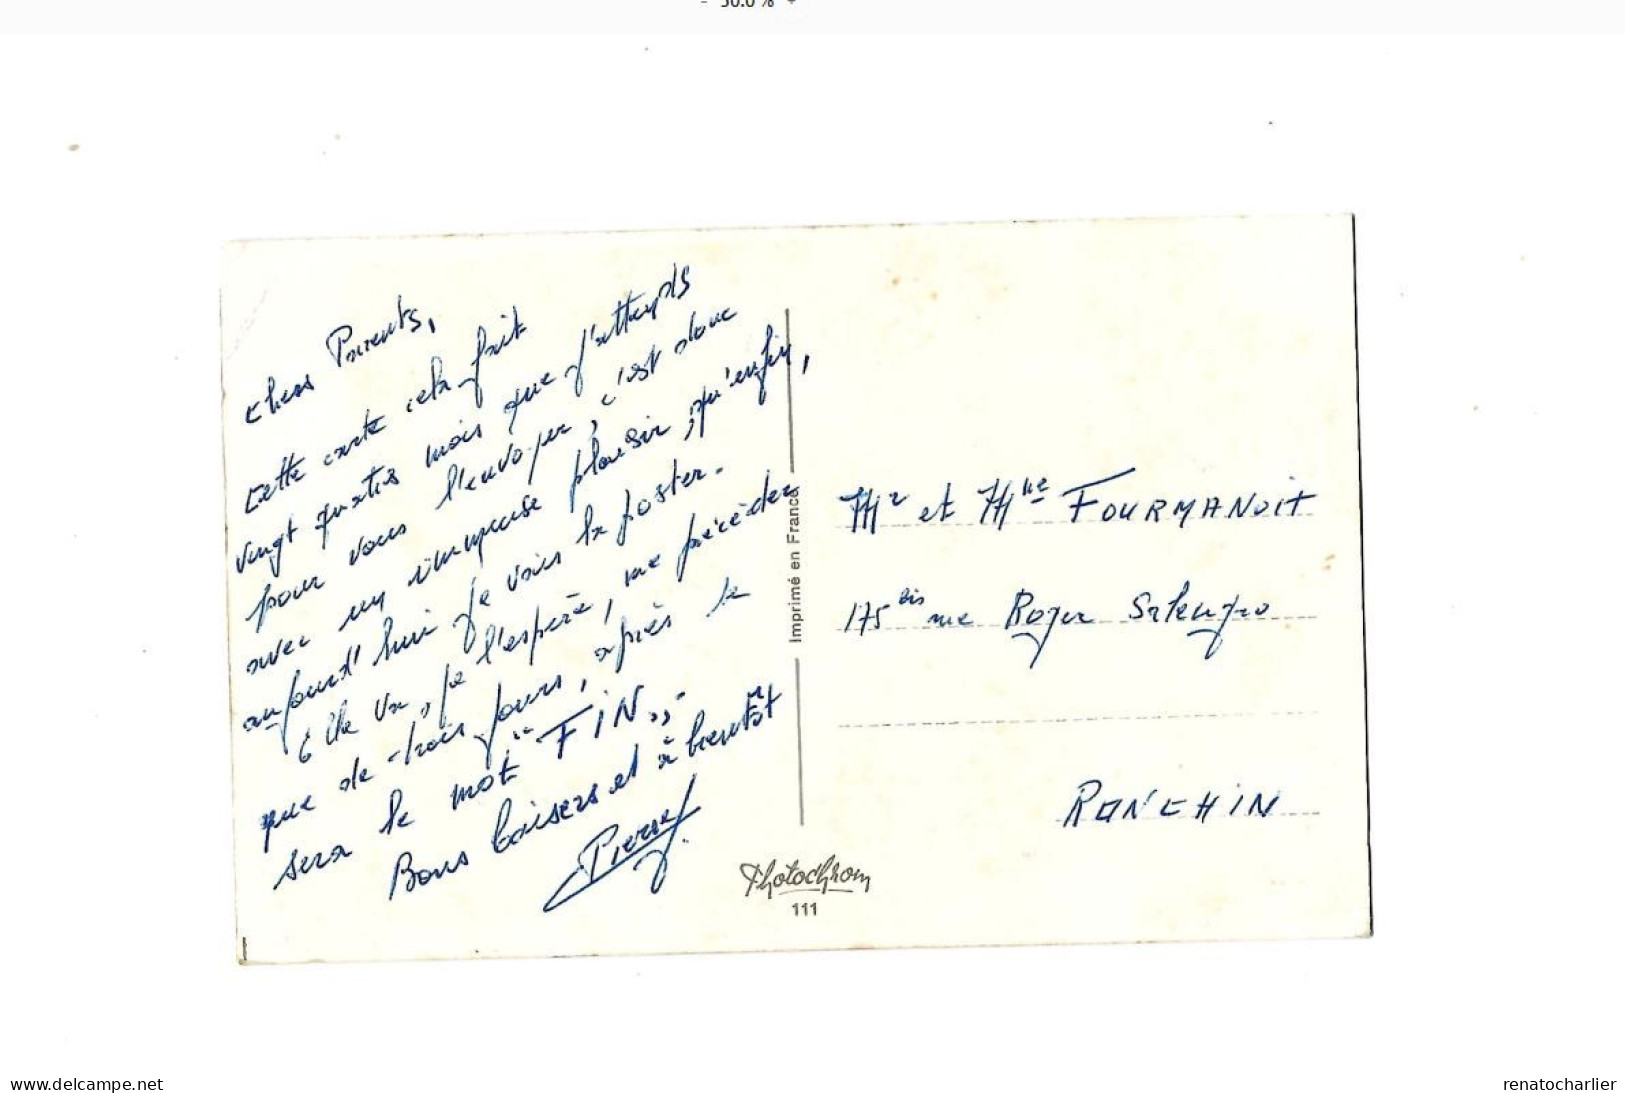 Chers Parents,
Cette carte cela fait
vingt quatre mois que j'attends
pour vous l'envoyer, c'est donc
avec un immense plaisir, qu'enfin,
aujourd'hui je vais la poster.
Elle va, je l'espère, me précéder
que de trois jours, après ce
sera le mot "FIN".
Bons baisers et à bientôt
Pierre
Mr et Mme FOURMANOIT
175 bis rue Roger Salengro
RONCHIN
Imprimé en France
Photochrom
111
www.delcampe.net
renatocharlier